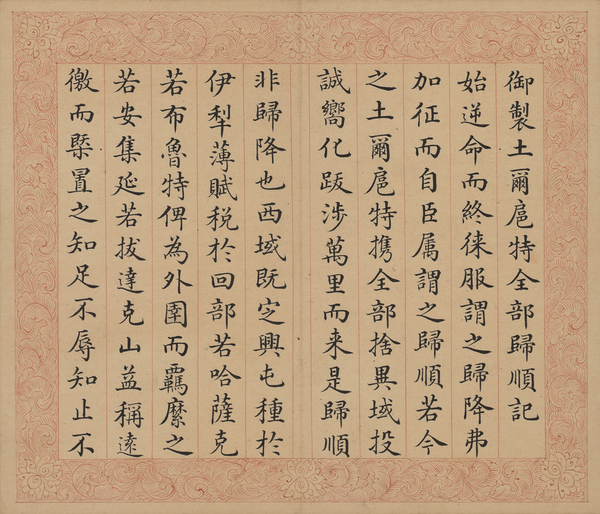 御製土爾扈特全部歸順記
始逆命而終徠服謂之歸降弗
加征而自臣属謂之歸順若今
之土爾扈特携全部捨異域投
誠嚮化跋涉萬里而来是歸順
非歸降也西域既定興屯種於
伊犁薄賦税於回部若哈薩克
若布魯特俾為外圉而羈縻之
若安集延若拔達克山益稱遠
徼而槩置之知足不辱知止不